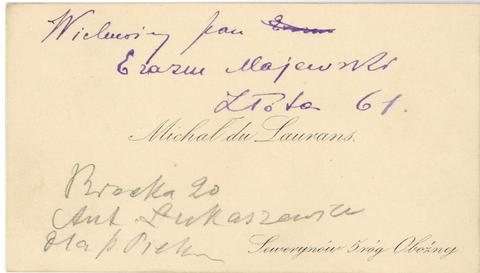 Wielmożny pan
Erazm Majewski
Złota 61.
Michał du Laurans.
Bracka 20
Ant. Łukaszewicz
dla p
Sewerynów 5 róg Oboźnej